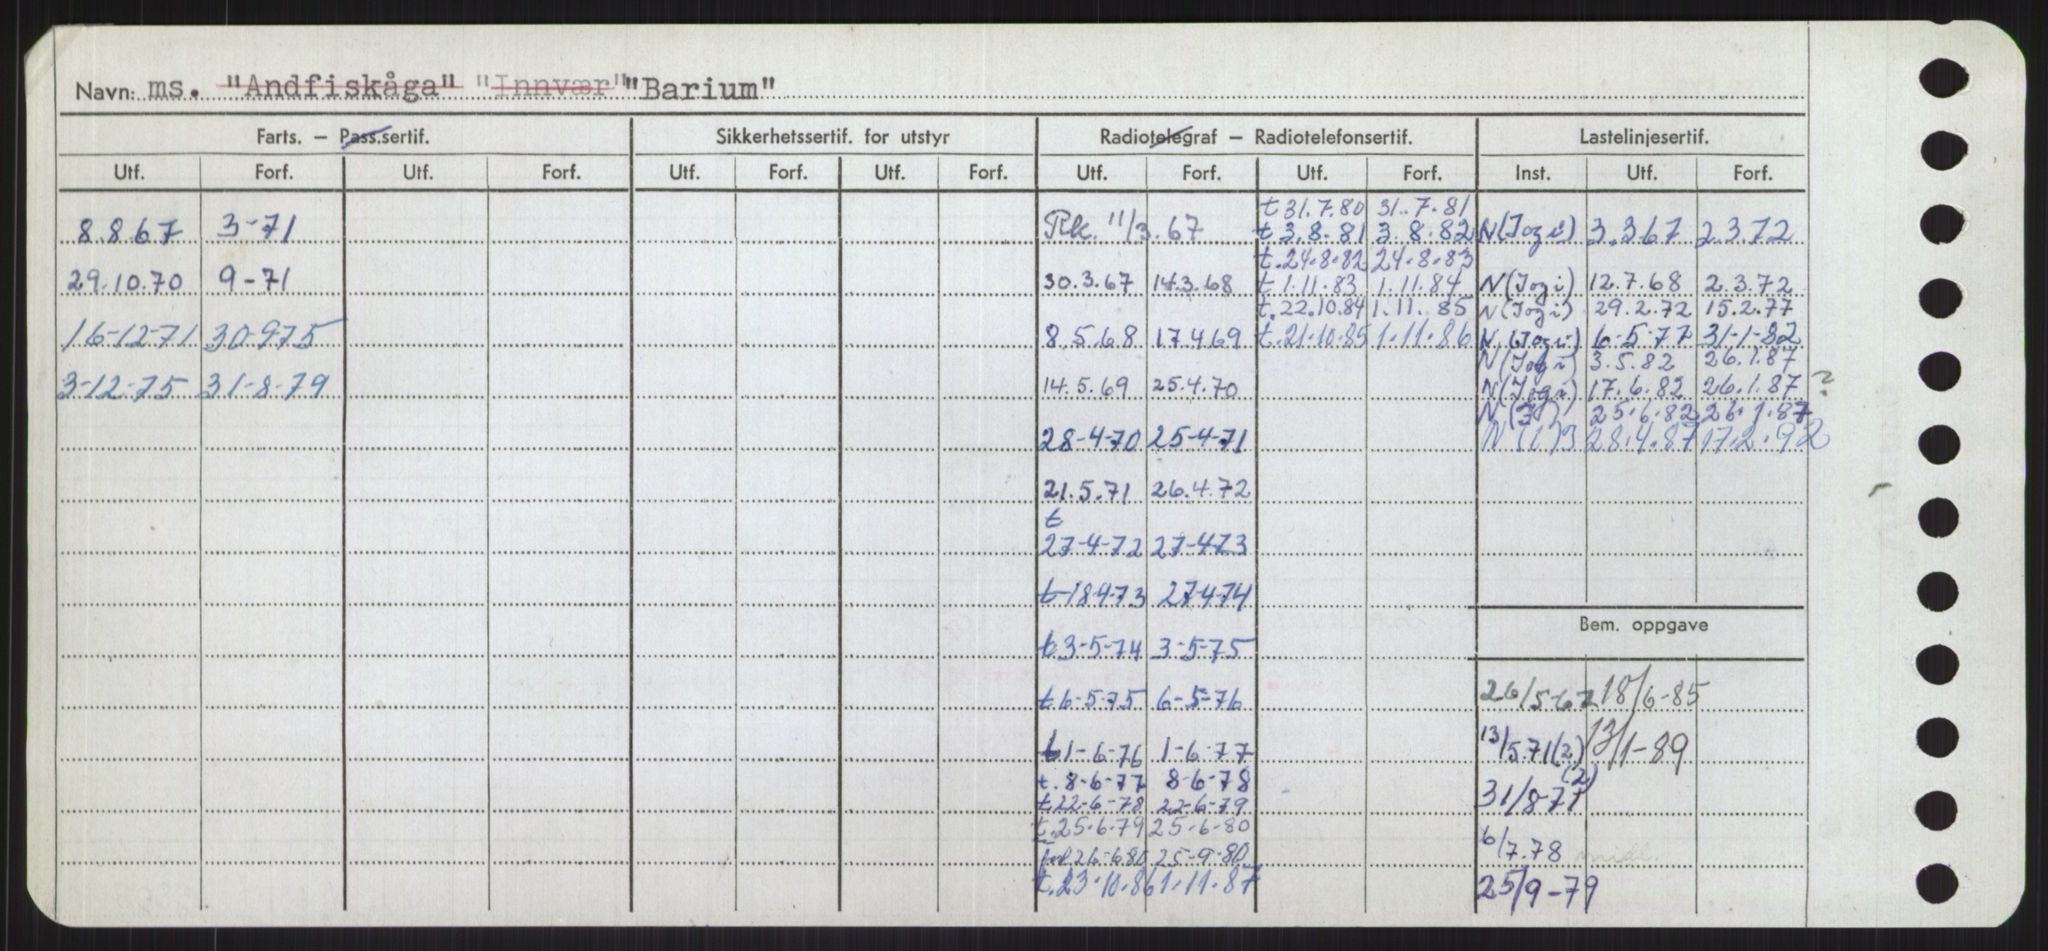 Navn: ms. "Andfiskåga" "Innvær" "Barium"
Farts. – Pass.sertif. Sikkerhetssertif. for utstyr Radiotelegraf – Radiotelefonsertif. Lastelinjesertif.
Utf. Forf. Utf. Forf. Utf. Forf. Utf. Forf. Utf. Forf. Utf. Forf. Inst. Utf. Forf.
t 31.7.80 31.7.81
8.8.67 3-71 Rk. 11/3.67 t 3.8.81 3.8.82 N(Jogi) 3.3.67 2.3.72
t.24.8.82 24.8.83
29.10.70 9-71 30.3.67 14.3.68 t 1.11.83 1.11.84 N(Jogi) 12.7.68 2.3.72
t.22.10.84 1.11.85 N(Jogi) 29.2.72 15.2.77
16-12-71 30-9-75 8.5.68 17.4.69 t.21.10.85 1.11.86 N.(Jogi) 6-5-77 31-1-82
N(Jogi) 3.5.82 26.1.87
3-12-75 31-8-79 14.5.69 25.4.70 N(Jogi) 17.6.82 26.1.87 ?
25.6.82 26.1.87
28-4-70 25-4-71 28.4.87 17.2.92
21.5.71 26.4.72
t
27-4-72 27-4-73
t-18-4-73 27-4-74
Bem. oppgave
t 3-5-74 3-5-75
t 6-5-75 6-5-76 26/5-67 18/6-85
t 1-6-76 1-6-77 13/5.71(2) 13/1-89
t. 8-6-77 8-6-78 (2)
t 22-6-78 22-6-79 31/8-71
t.25.6.79 25.6.80
6/7.78
26.6.80 25-9-80
t.23.10.86 1.11.87 25/9-79